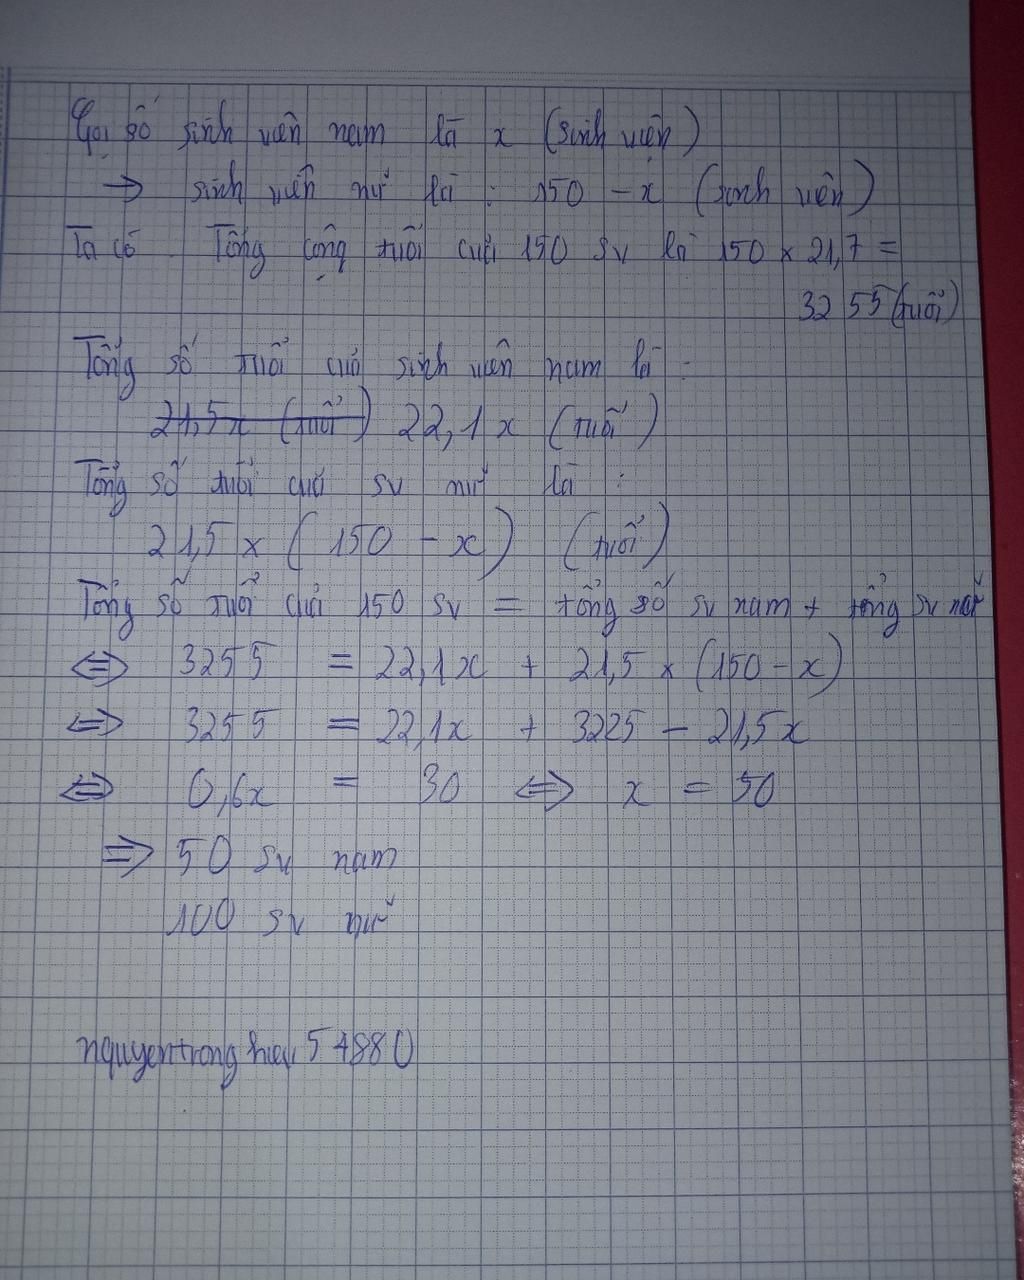 Gọi số sinh viên nam là x (sinh viên)
→ sinh viên nữ là : 150 - x (sinh viên)
Ta có Tổng cộng tuổi của 150 sv là 150 x 21,7 =
3255 (tuổi)
Tổng số tuổi của sinh viên nam là :
21,5x (tuổi) 22,1x (tuổi)
Tổng số tuổi của sv nữ là :
21,5 x (150 - x) (tuổi)
Tổng số tuổi của 150 sv = tổng số sv nam + tổng sv nữ
⇔ 3255 = 22,1x + 21,5 x (150 - x)
⇔ 3255 = 22,1x + 3225 - 21,5x
⇔ 0,6x = 30 ⇔ x = 50
⇒ 50 sv nam
100 sv nữ
nguyentrong hieu 54880